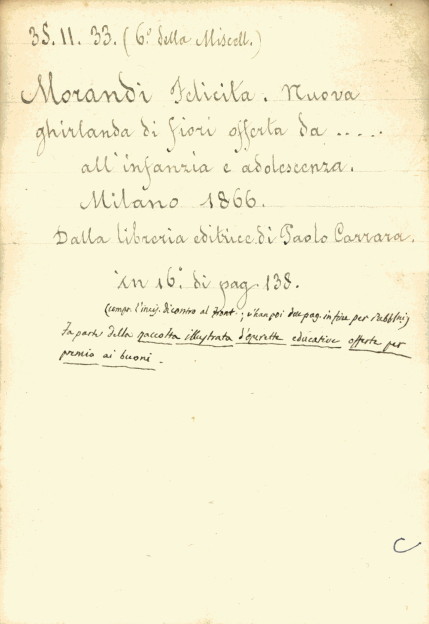 35. 11. 33. (6.º della Miscell.)
Morandi Felicita. Nuova
ghirlanda di fiori offerta da .....
all'infanzia e adolescenza.
Milano 1866.
Dalla libreria editrice di Paolo Carrara.
in 16.º di pag. 138.
(compr. l'incis. di contro al front.; v'han poi due pag. in fine per
Fa parte della raccolta illustrata d'operette educative offerte per
premio ai buoni.
C